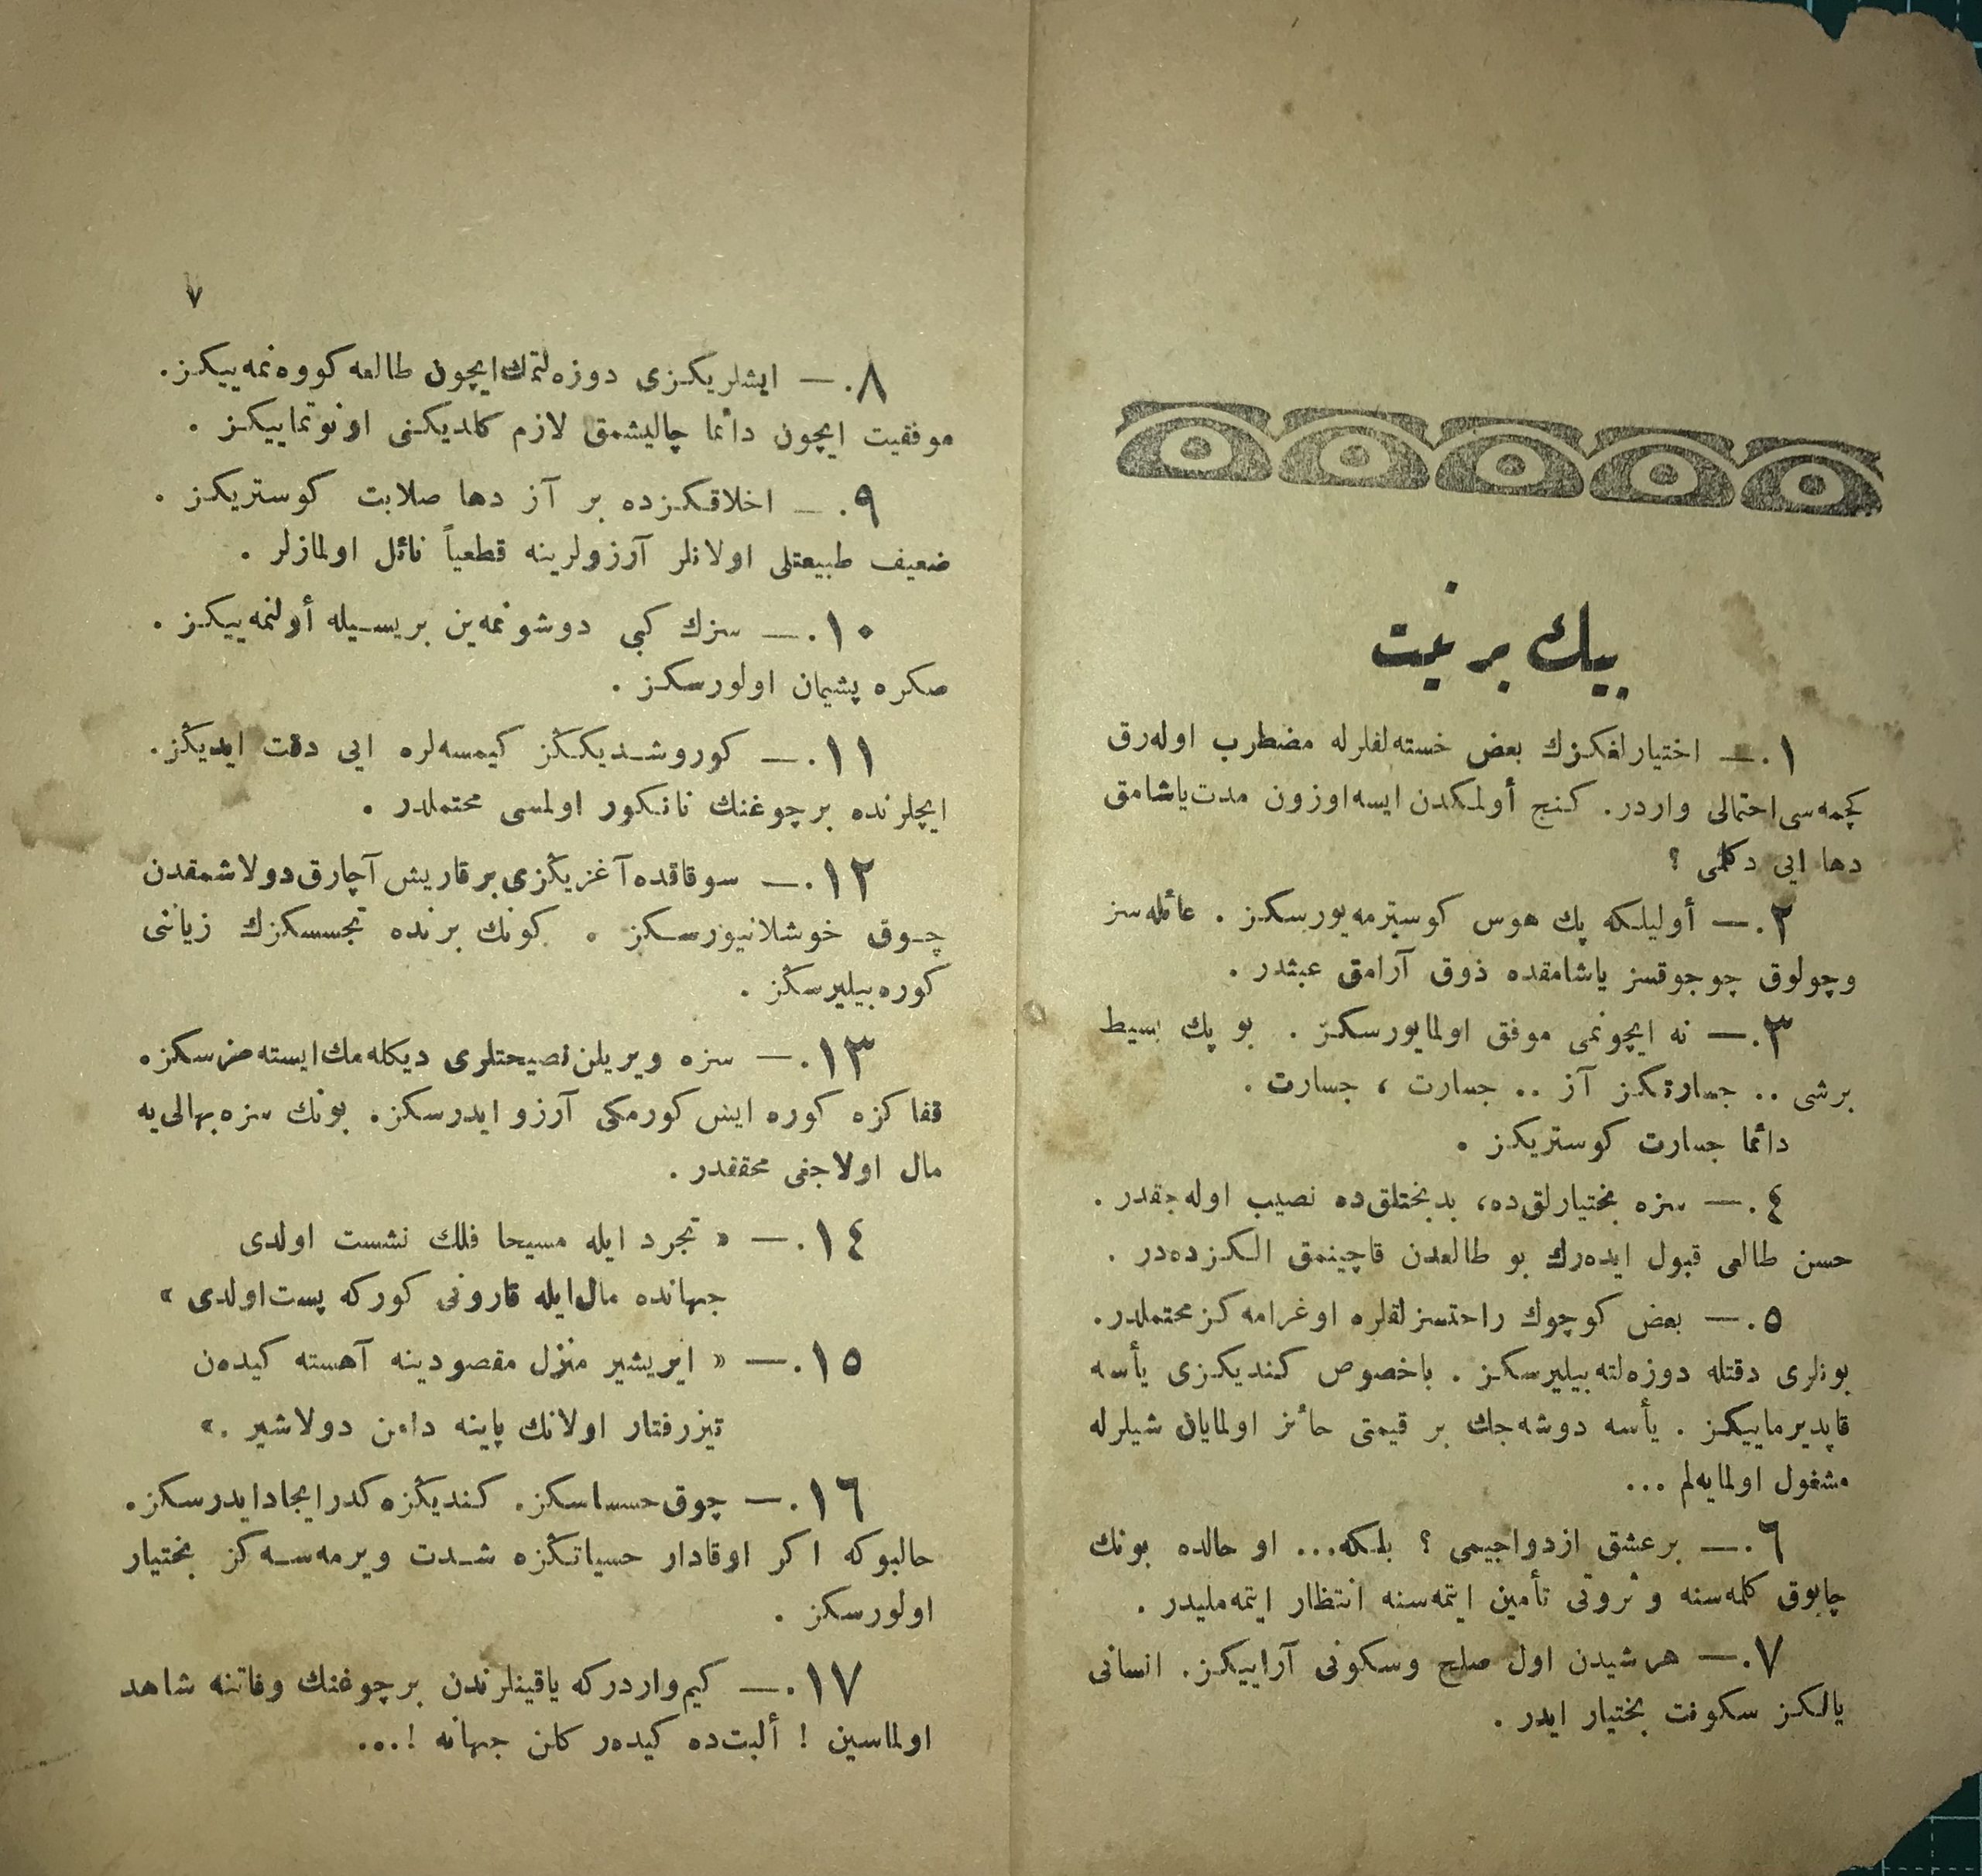 بيك بر نيت
١. — اختيارلغكزك بعض خسته‌لقلرله مضطرب اوله‌رق
كچمه‌سی احتمالی واردر. كنج أولمكدن ايسه اوزون مدت ياشامق
دها ايی دكلمی ؟
٢. — أوليلكه پك هوس كوسترمه‌يورسكز . عائله‌سز
وچولوق چوجوقسز ياشامقده ذوق آرامق عبثدر .
٣. — نه ايچونمی موفق اولمايورسكز . بو پك بسيط
برشی .. جسارتكز آز .. جسارت ، جسارت .
دائما جسارت كوستريكز .
٤. — سزه بختيارلق‌ده، بدبختلق‌ده نصيب اوله‌جقدر .
حسن طالعی قبول ايده‌رك بو طالعدن قاچينمق الكزده‌در .
٥. — بعض كوچوك راحتسزلقلره اوغرامه‌كز محتملدر.
بونلری دقتله دوزه‌لته‌بيليرسكز . باخصوص كنديكزی يأسه
قاپديرماييكز . يأسه دوشه‌جك بر قيمتی حائز اولمايان شيلرله
مشغول اولمايه‌لم ...
٦. — برعشق ازدواجيمی ؟ بلكه... او حالده بونك
چابوق كلمه‌سنه و ثروتی تأمين ايتمه‌سنه انتظار ايتمه‌ليدر .
٧. — هرشيدن اول صلح وسكونی آراييكز. انسانی
يالكز سكونت بختيار ايدر .
٧
٨. — ايشلريكزی دوزه‌لتمك ايچون طالعه كووه‌نمه‌ييكز.
موفقيت ايچون دائما چاليشمق لازم كلديكنی اونوتماييكز .
٩. — اخلاقكزده بر آز دها صلابت كوستريكز .
ضعيف طبيعتلی اولانلر آرزولرينه قطعياً نائل اولمازلر .
١٠. — سزك كبی دوشونمه‌ين بريسيله أولنمه‌ييكز .
صكره پشيمان اولورسكز .
١١. — كوروشديككڭز كيمسه‌لره ايی دقت ايديڭز.
ايچلرنده برچوغنك نانكور اولمسی محتملدر .
١٢. — سوقاقده آغزيڭزی برقاريش آچارق دولاشمقدن
چوق خوشلانيورسكز . كونك برنده تجسسكزك زيانی
كوره‌بيليرسڭز .
١٣. — سزه ويريلن نصيحتلری ديكله‌مك ايسته‌مزسكزه
قفاكزه كوره ايش كورمكی آرزو ايدرسكز. بونك سزه بهالی‌يه
مال اولاجغی محققدر .
١٤. — « تجرد ايله مسيحا فلك نشست اولدی
جهانده مال ايله قارونی كوركه پست اولدی »
١٥. — « ايريشير منزل مقصودينه آهسته كيده‌ن
تيزرفتار اولانك پاينه دامن دولاشير .»
١٦. — چوق حسساسكز. كنديڭزه كدر ايجاد ايدرسكز.
حالبوكه اكر اوقادار حسياتڭزه شدت ويرمه‌سه‌كز بختيار
اولورسكز .
١٧. — كيم واردركه ياقينلرندن برچوغنك وفاتنه شاهد
اولماسين ! ألبت‌ده كيده‌ر كلن جهانه !...